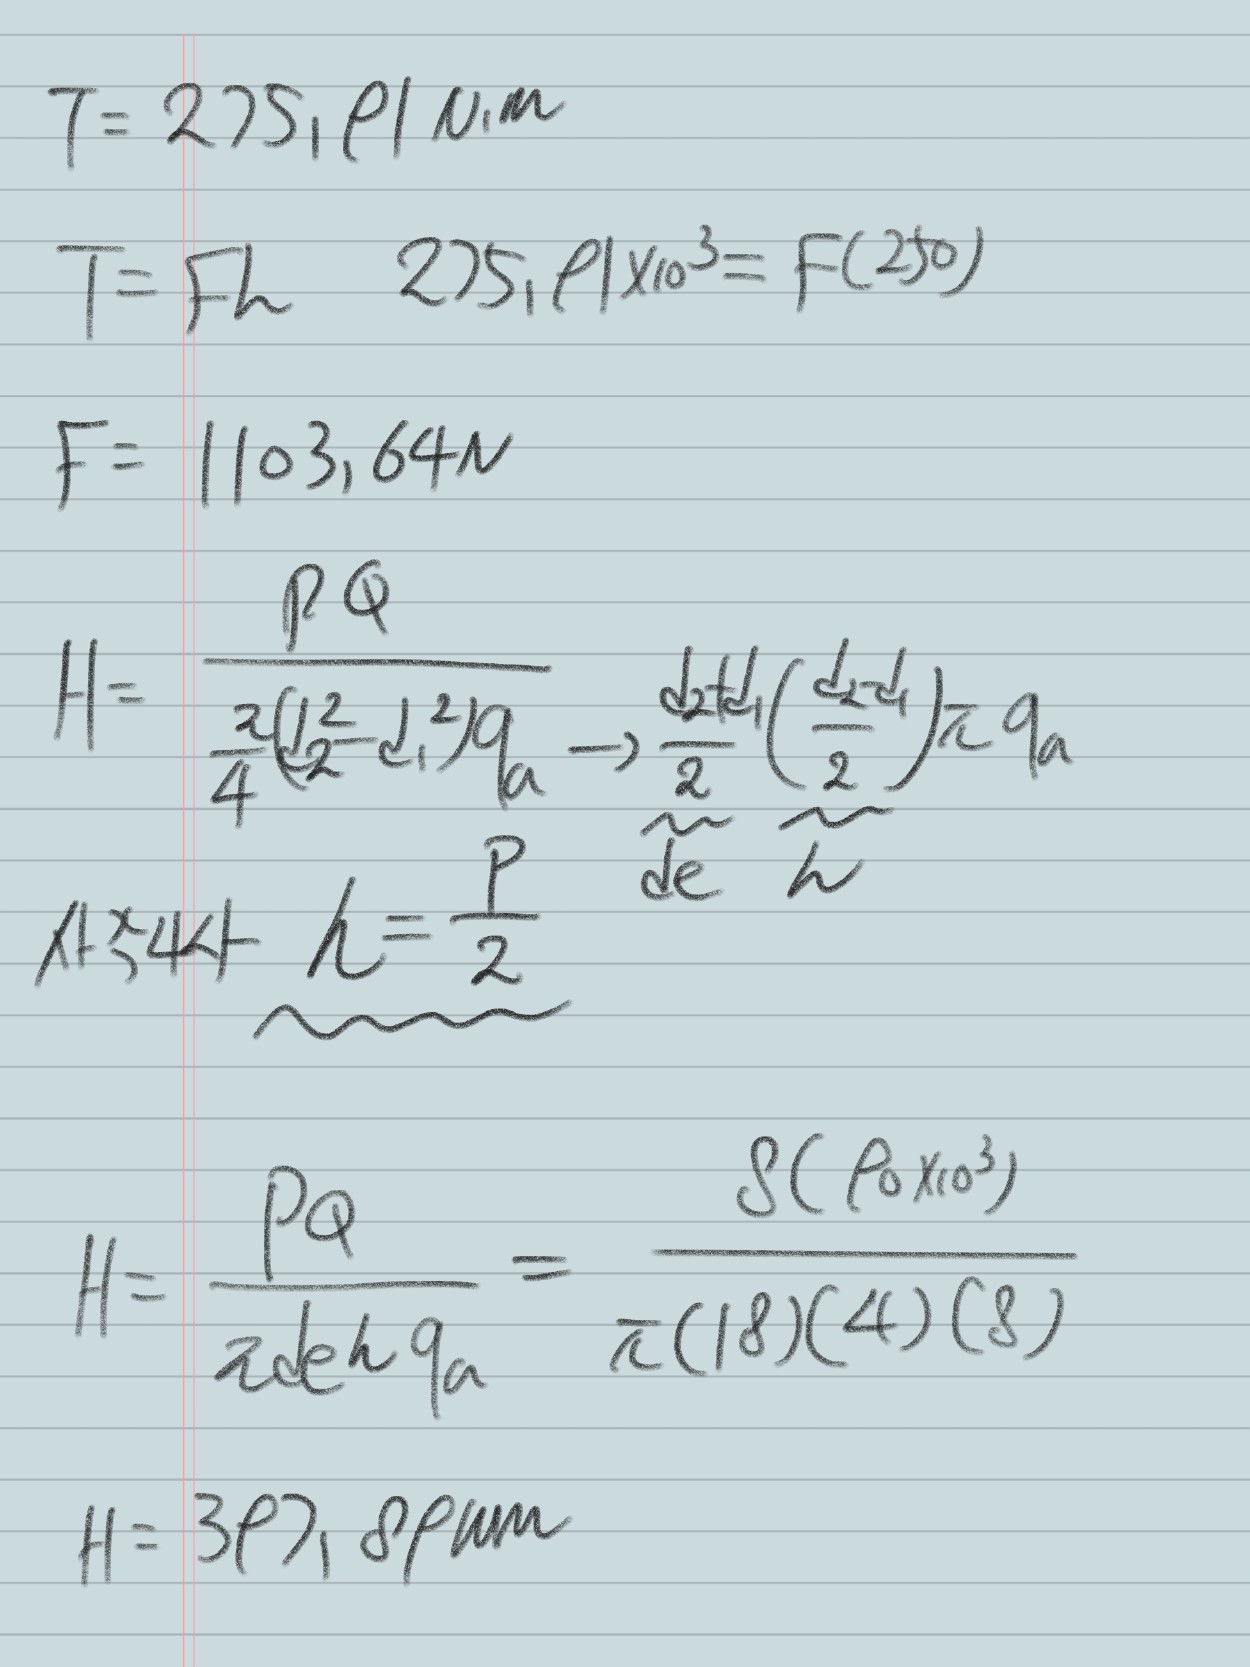 T = 275,91 N,m
T = Fh 275,91×10³ = F(250)
F = 1103,64N
H = PQ / π/4(d₂²-d₁²)qₐ → d₂+d₁/2 (d₂-d₁/2)π qₐ
de h
사각나사 h = P/2
H = PQ / πdehqₐ = 8(90×10³) / π(18)(4)(8)
H = 397,89mm